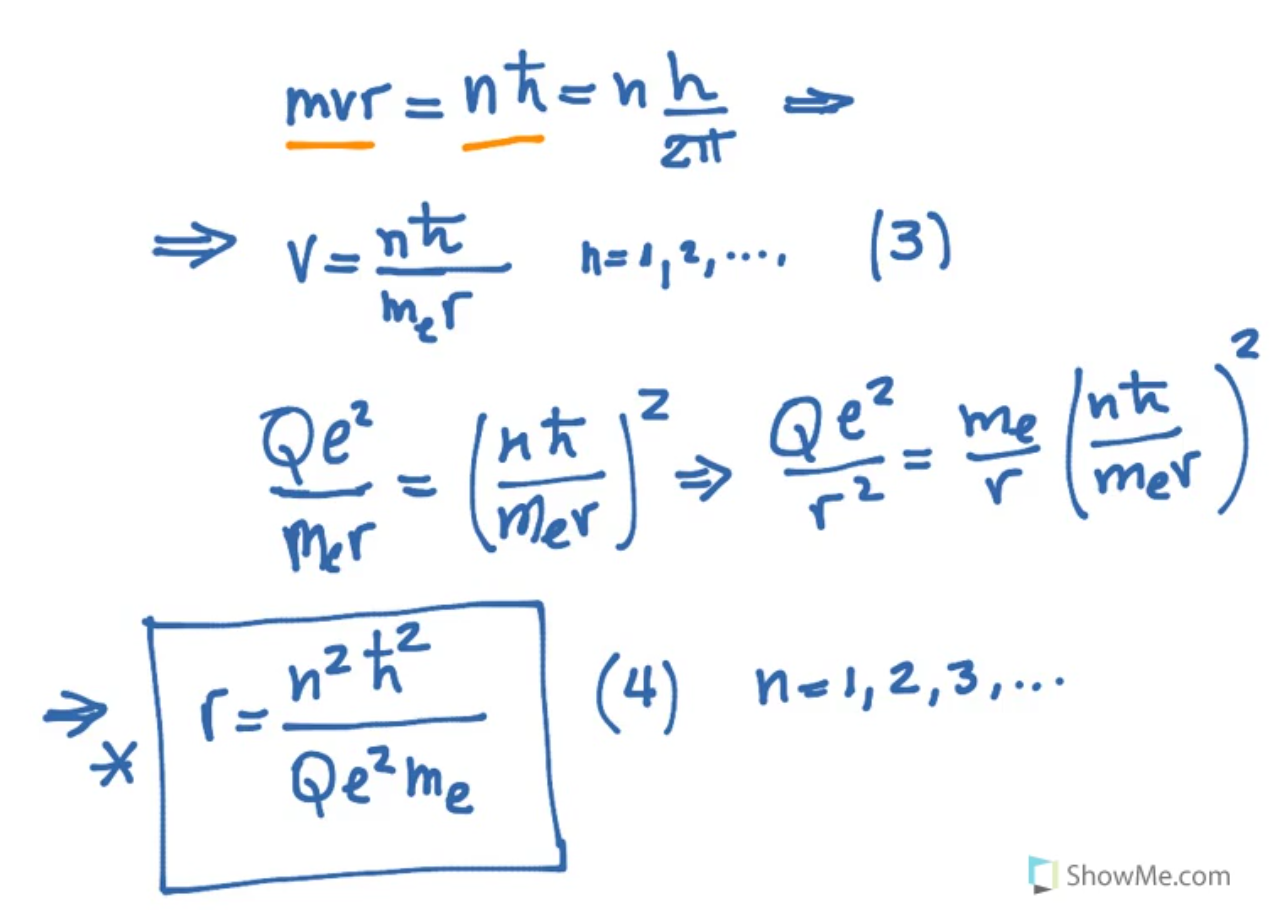 mvr = nħ = n h/2π ⇒
⇒ v = nħ/mₑr n=1, 2, .... (3)
Qe²/mₑr = (nħ/mₑr)² ⇒ Qe²/r² = mₑ/r (nħ/mₑr)²
⇒* r = n²ħ²/Qe²mₑ (4) n=1, 2, 3, ...
ShowMe.com